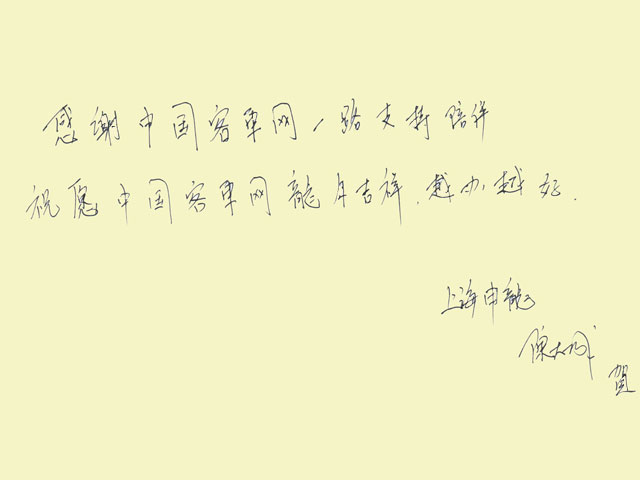 感谢中国客車网一路支持陪伴
祝愿中国客車网龍年吉祥.越办越好.
上海申龍
陳大城
贺